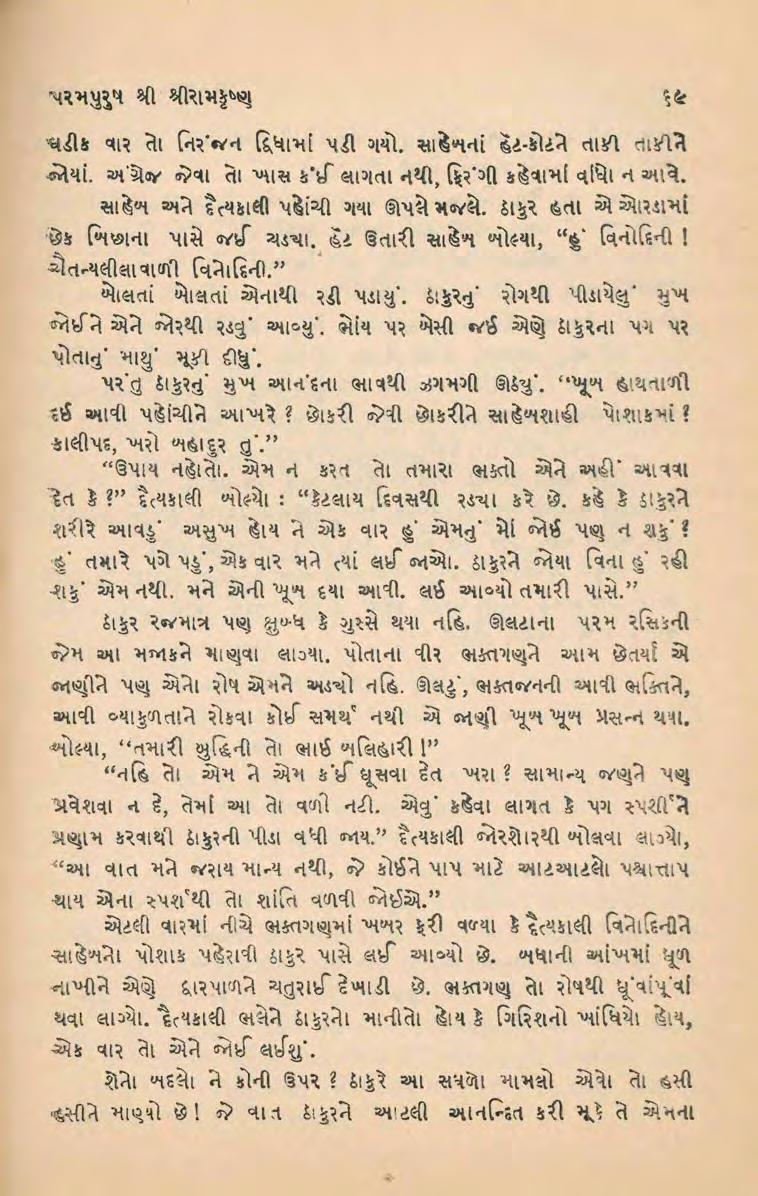 પરમપુરુષ શ્રી શ્રીરામકૃષ્ણ ૬૯
ઘડીક વાર તો નિરંજન દ્વિધામાં પડી ગયો. સાહેબનાં હૅટ-કોટને તાકી તાકીને
જોયાં. અંગ્રેજ જેવા તો ખાસ કંઈ લાગતા નથી, ફિરંગી કહેવામાં વાંધો ન આવે.
સાહેબ અને દૈત્યકાલી પહોંચી ગયા ઊપલે મજલે. ઠાકુર હતા એ ઓરડામાં
છેક બિછાના પાસે જઈ ચડ્યા. હૅટ ઉતારી સાહેબ બોલ્યા, “હું વિનોદિની !
ચૈતન્યલીલાવાળી વિનોદિની.”
બોલતાં બોલતાં એનાથી રડી પડાયું. ઠાકુરનું રોગથી પીડાયેલું મુખ
જોઈને એને જોરથી રડવું આવ્યું. ભોંય પર બેસી જઈ એણે ઠાકુરના પગ પર
પોતાનું માથું મૂકી દીધું.
પરંતુ ઠાકુરનું મુખ આનંદના ભાવથી ઝગમગી ઊઠ્યું. “ખૂબ હાથતાળી
દઈ આવી પહોંચીને આખરે ? છોકરી જેવી છોકરીને સાહેબશાહી પોશાકમાં ?
કાલીપદ, ખરો બહાદુર તું.”
“ઉપાય નહોતો. એમ ન કરત તો તમારા ભક્તો એને અહીં આવવા
દેત કે ?” દૈત્યકાલી બોલ્યો : “કેટલાય દિવસથી રડ્યા કરે છે. કહે કે ઠાકુરને
શરીરે આવડું અસુખ હોય ને એક વાર હું એમનું મોં જોઈ પણ ન શકું ?
હું તમારે પગે પડું, એક વાર મને ત્યાં લઈ જાઓ. ઠાકુરને જોયા વિના હું રહી
શકું એમ નથી. મને એની ખૂબ દયા આવી. લઈ આવ્યો તમારી પાસે.”
ઠાકુર રજમાત્ર પણ ક્ષુબ્ધ કે ગુસ્સે થયા નહિ. ઊલટાના પરમ રસિકની
જેમ આ મજાકને માણવા લાગ્યા. પોતાના વીર ભક્તગણને આમ છેતર્યાં એ
જાણીને પણ એનો રોષ એમને અડ્યો નહિ. ઊલટું, ભક્તજનની આવી ભક્તિને,
આવી વ્યાકુળતાને રોકવા કોઈ સમર્થ નથી એ જાણી ખૂબ ખૂબ પ્રસન્ન થયા.
બોલ્યા, “તમારી બુદ્ધિની તો ભાઈ બલિહારી !”
“નહિ તો એમ ને એમ કંઈ ઘૂસવા દેત ખરા ? સામાન્ય જણને પણ
પ્રવેશવા ન દે, તેમાં આ તો વળી નટી. એવું કહેવા લાગત કે પગ સ્પર્શીને
પ્રણામ કરવાથી ઠાકુરની પીડા વધી જાય.” દૈત્યકાલી જોરશોરથી બોલવા લાગ્યો,
“આ વાત મને જરાય માન્ય નથી, જે કોઈને પાપ માટે આટઆટલો પશ્ચાત્તાપ
થાય એના સ્પર્શથી તો શાંતિ વળવી જોઈએ.”
એટલી વારમાં નીચે ભક્તગણમાં ખબર ફરી વળ્યા કે દૈત્યકાલી વિનોદિનીને
સાહેબનો પોશાક પહેરાવી ઠાકુર પાસે લઈ આવ્યો છે. બધાની આંખમાં ધૂળ
નાખીને એણે દ્વારપાળને ચતુરાઈ દેખાડી છે. ભક્તગણ તો રોષથી ધૂંવાંપૂંવાં
થવા લાગ્યો. દૈત્યકાલી ભલેને ઠાકુરનો માનીતો હોય કે ગિરિશનો ખાંધિયો હોય,
એક વાર તો એને જોઈ લઈશું.
શેનો બદલો ને કોની ઉપર ? ઠાકુરે આ સઘળો મામલો એવો તો હસી
હસીને માણ્યો છે ! જે વાત ઠાકુરને આટલી આનન્દિત કરી મૂકે તે એમના